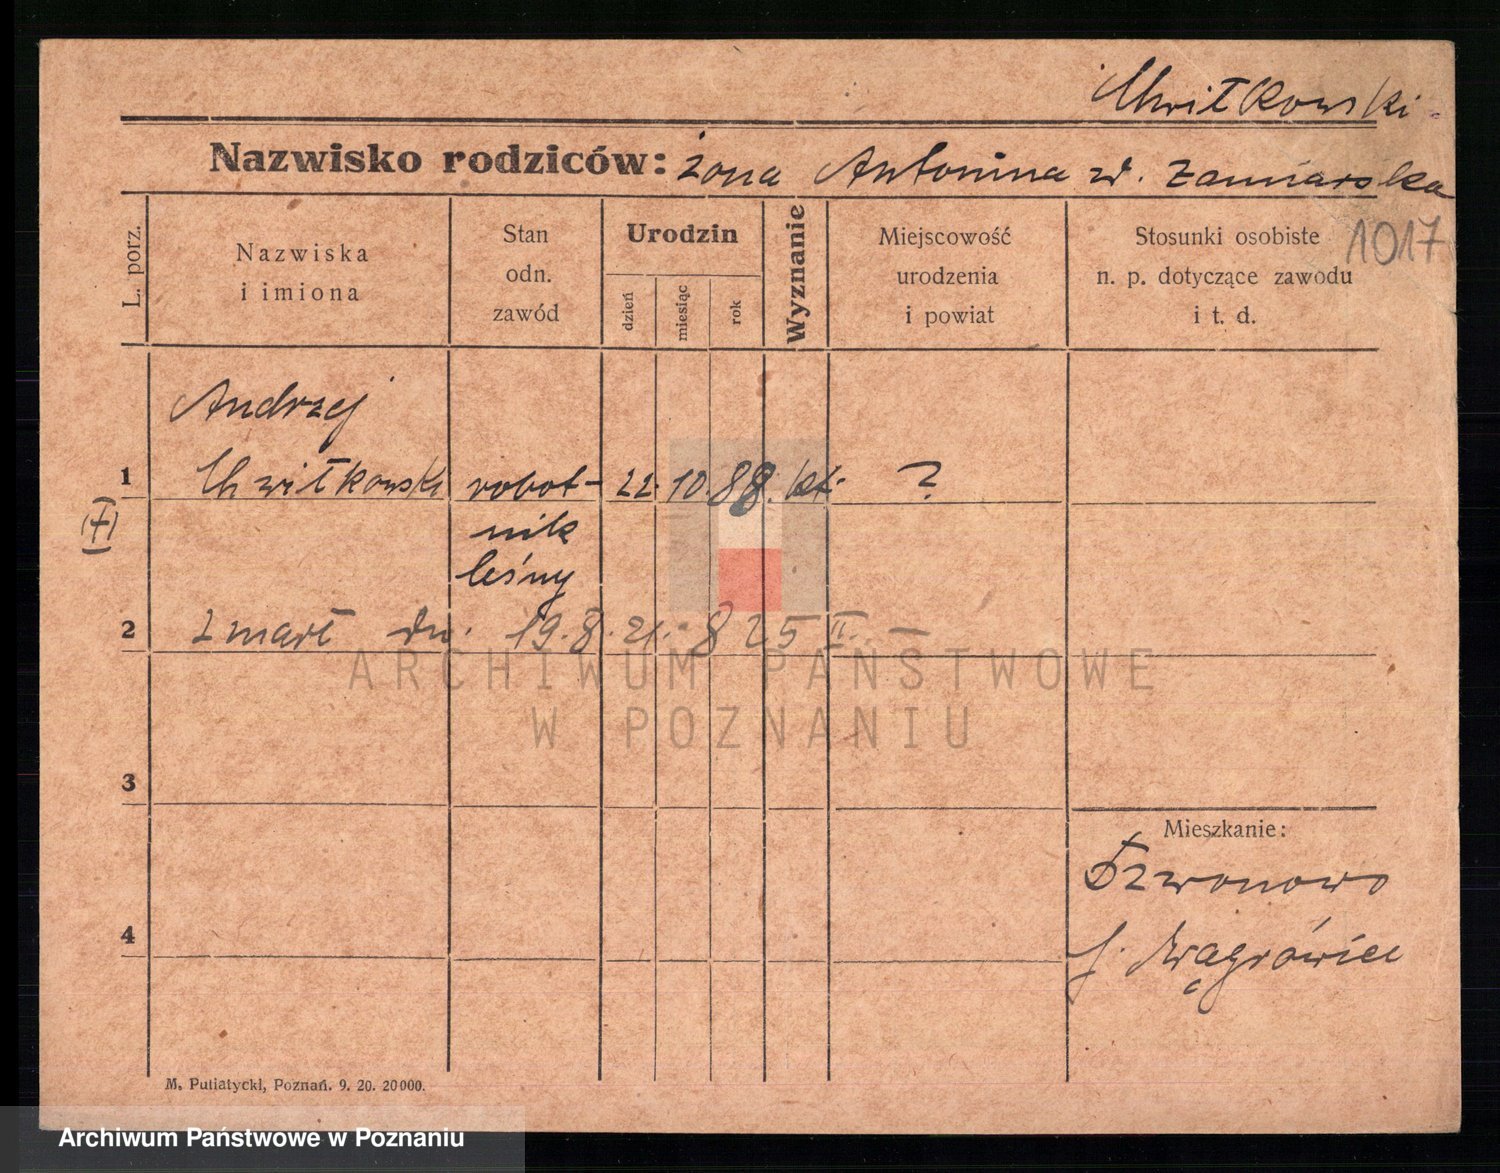 Chwiłkowski
Nazwisko rodziców: żona Antonina zd.
1017
L. porz.
Nazwiska
i imiona
Stan
odn.
zawód
Urodzin
dzień
miesiąc
rok
Wyznanie
Miejscowość
urodzenia
i powiat
Stosunki osobiste
n. p. dotyczące zawodu
i t. d.
Andrzej
1 Chwiłkowski robot- 22. 10. 88. kt. ?
(†)
nik
leśny
2 zmarł dn. 19. 8. 21. 825 II.
ARCHIWUM PAŃSTWOWE
W POZNANIU
3
Mieszkanie:
Dzwonowo
4
p. Wągrówiec
M. Putiatycki, Poznań. 9. 20. 20000.
Archiwum Państwowe w Poznaniu